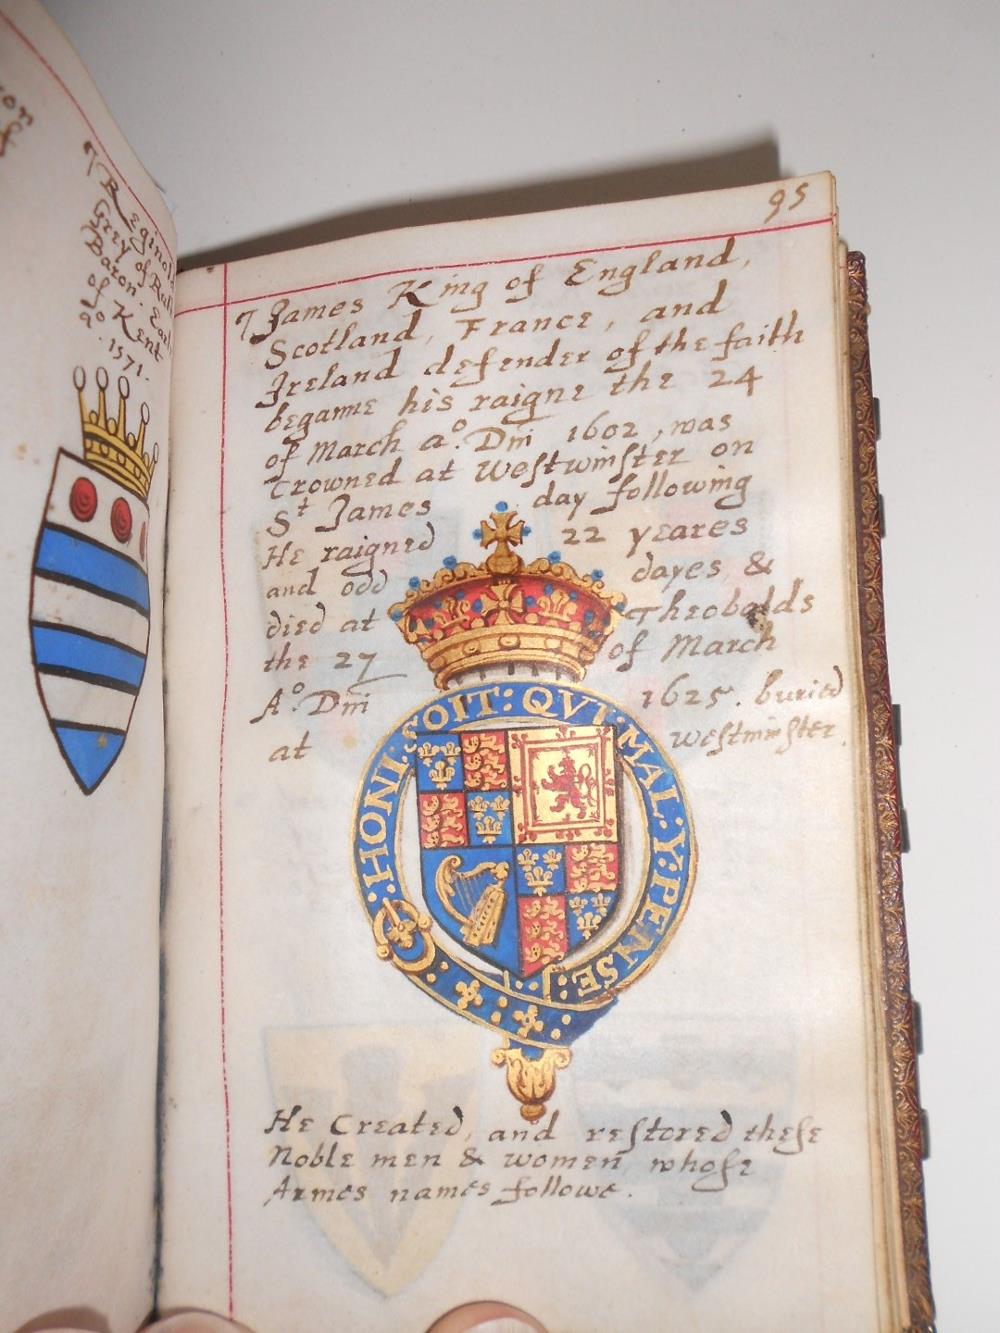 Reginold
Grey of
Baron. Earle
of Kent
aº. 1571.
95
James King of England,
Scotland, France, and
Ireland defender of the faith
beganne his raigne the 24
of March aº. Dm̄ 1602, was
Crowned at Weſtminſter on
Sᵗ James day following
He raigned 22 yeares
and odd dayes, &
died at Theobalds
the 27 of March
Aº. Dm̄ 1625. buried
at Weſtminſter.
HONI. SOIT: QVI: MAL: Y: PENSE:
He Created, and reſtored theſe
Noble men & women, whoſe
Armes names followe.